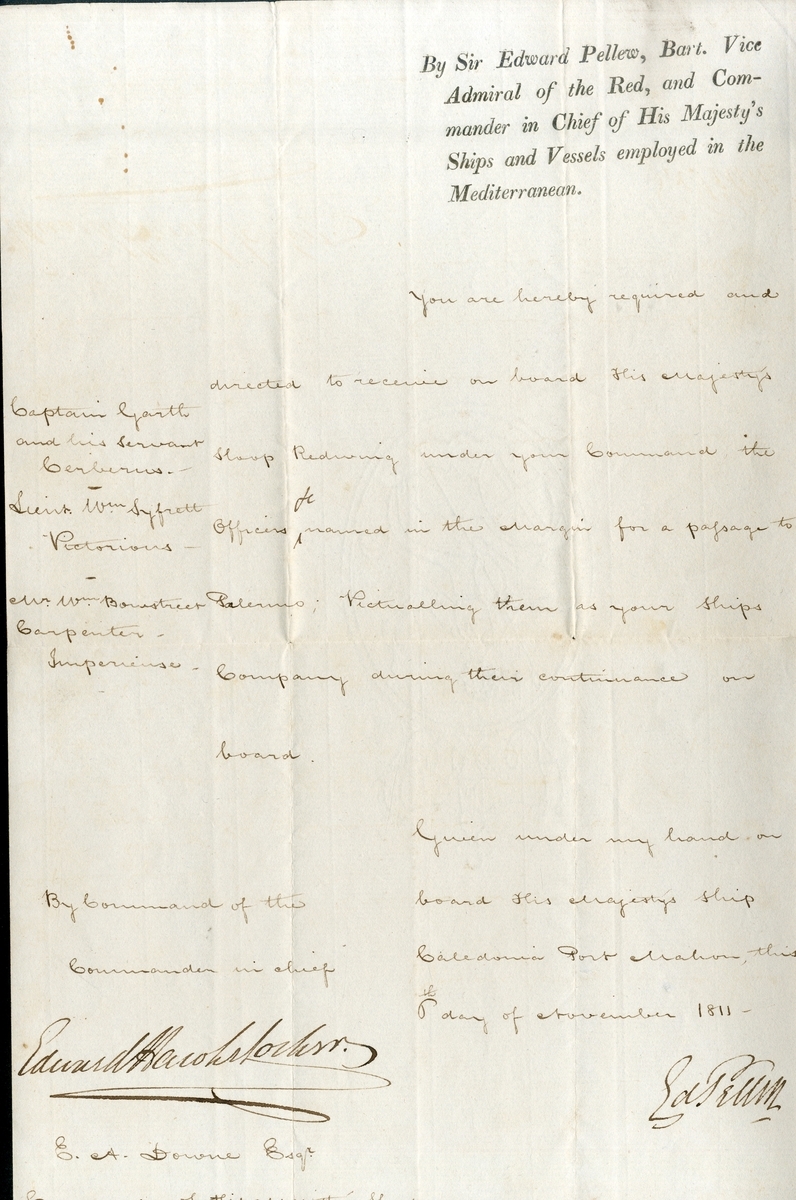 By Sir Edward Pellew, Bart. Vice
Admiral of the Red, and Com-
mander in Chief of His Majesty's
Ships and Vessels employed in the
Mediterranean.
You are hereby required and
directed to receive on board His Majesty's
Sloop Redwing under your Command the
Officers &c named in the Margin for a passage to
Palermo; Victualling them as your Ships
Company during their continuance on
board.
Captain Garth
and his Servant
Cerberus. -
Lieut. Wm Syfrett
Victorious -
Mr. Wm Bowstreet
Carpenter -
Imperieuse -
Given under my hand on
board His Majesty's Ship
Caledonia Port Mahon, this
6th day of November 1811 -
Ed Pellew
By Command of the
Commander in chief
Edward Hawke Locker.
E. A. Downe Esqr.
of His Majesty's